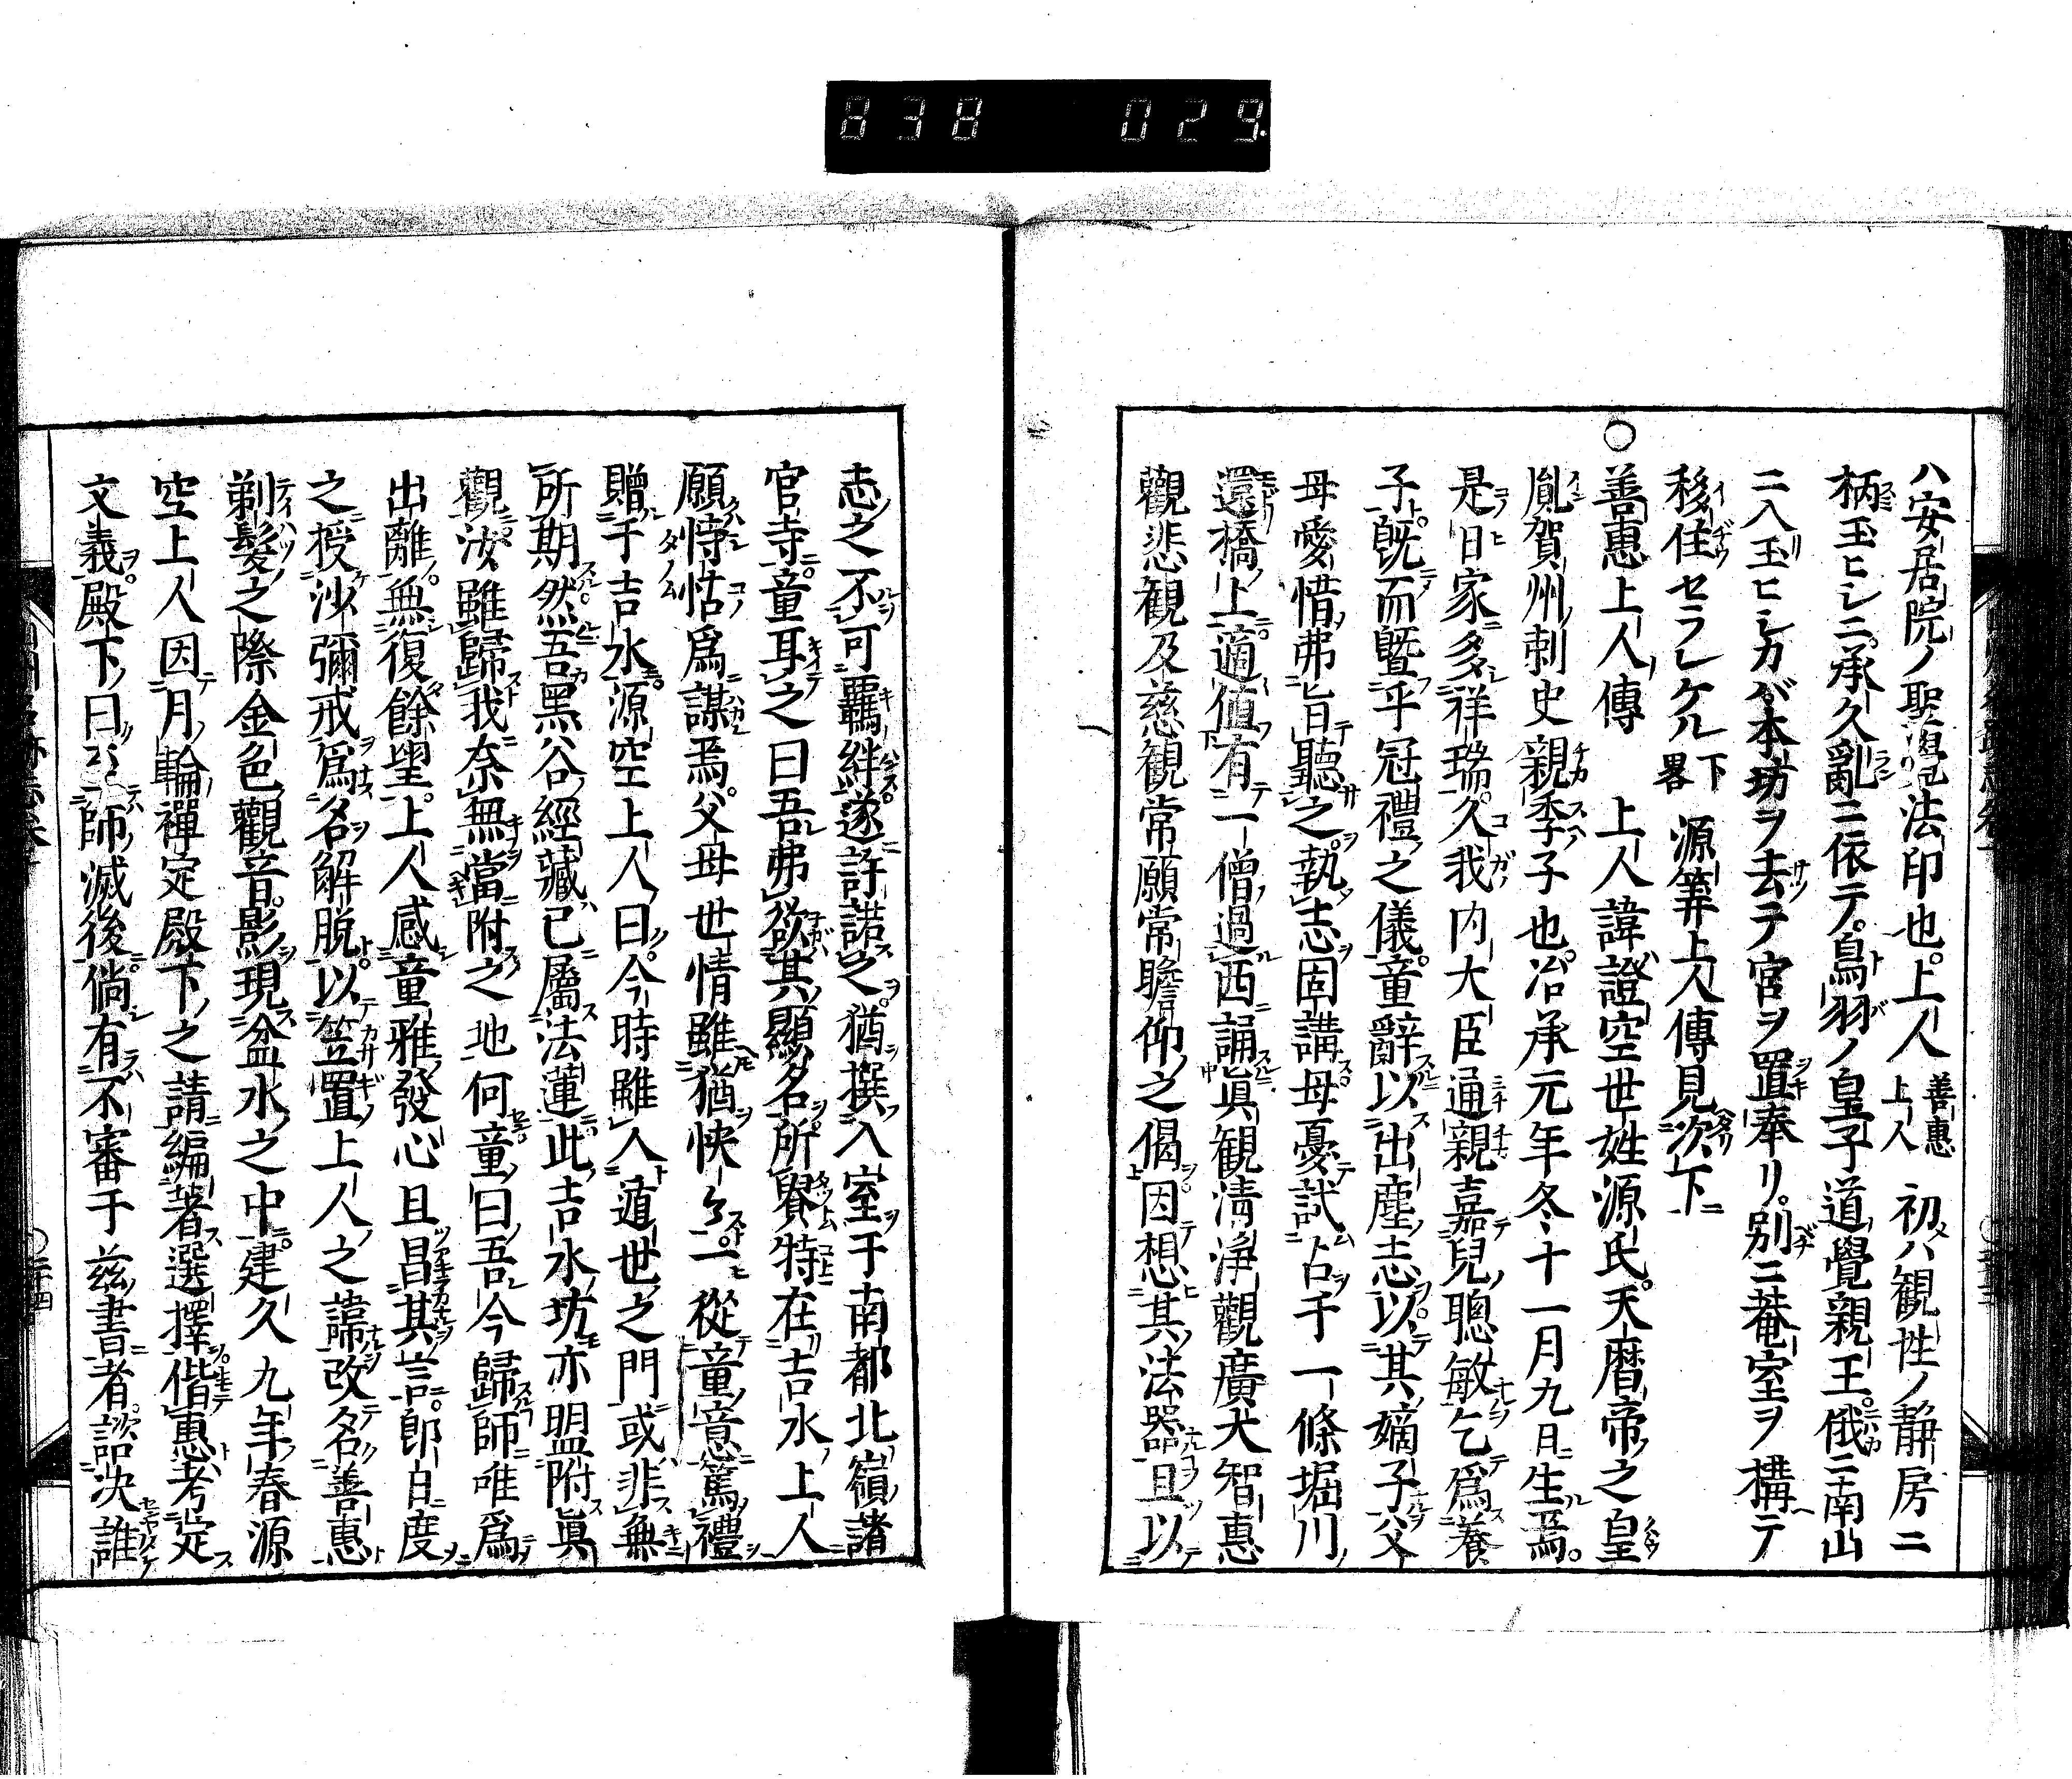 838 029
ハ安居院ノ聖覺法印也上人善惠上人初ハ観性ノ靜房ニ
柄玉ヒシニ承久亂ニ依テ鳥羽ノ皇子道覺親王俄ニ南山
ニ入玉ヒシカバ本坊ヲ去テ宮ヲ置奉リ別ニ菴室ヲ構テ
移住セラレケル下畧源筭上人傳見次下
○善惠上人傳 上人諱證空世姓源氏天暦帝之皇
胤賀州刺史親季子也治承元年冬十一月九日生焉
是日家多祥瑞久我内大臣通親嘉兒聰敏乞爲養
子既而曁乎冠禮之儀童辭以出塵志以其嫡子父
母愛惜弗旨聽之執志固講母憂試占于一條堀川
還橋上適値有一僧過西誦眞観淸淨觀廣大智惠
觀悲観及慈観常願常瞻仰之偈因想其法器且以
志之不可羈絆遂許諾之猶撰入室于南都北嶺諸
官寺童耳之曰吾弗欲其顯名所賢特在吉水上人
願恃怙爲謀焉父母世情雖猶怏々一從童意篤禮
贈于吉水源空上人曰今時雖人遁世之門或非無
所期然吾黑谷經藏已屬法蓮此吉水坊亦盟附眞
觀汝雖歸我奈無當附之地何童曰吾今歸師唯爲
出離無復餘望上人感童雅發心且昌其言即白度
之授沙彌戒爲名解脱以笠置上人之諱改名善惠
剃髮之際金色觀音影現盆水之中建久九年春源
空上人因月輪禪定殿下之請編著選擇偕惠考定
文義殿下曰師滅後倘有不審于兹書者諮決誰